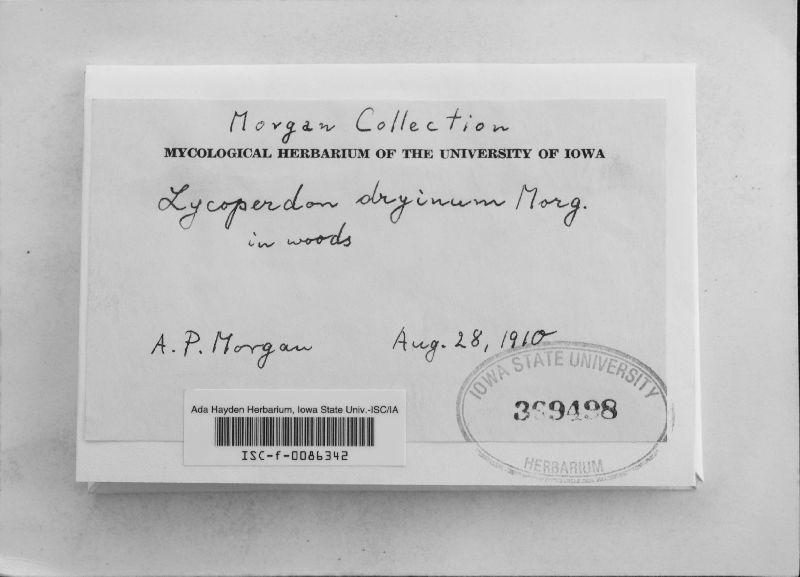 Morgan Collection
MYCOLOGICAL HERBARIUM OF THE UNIVERSITY OF IOWA
Lycoperdon dryinum Morg.
in woods
A. P. Morgan Aug. 28, 1910
IOWA STATE UNIVERSITY
369498
HERBARIUM
Ada Hayden Herbarium, Iowa State Univ.-ISC/IA
ISC-f-0086342